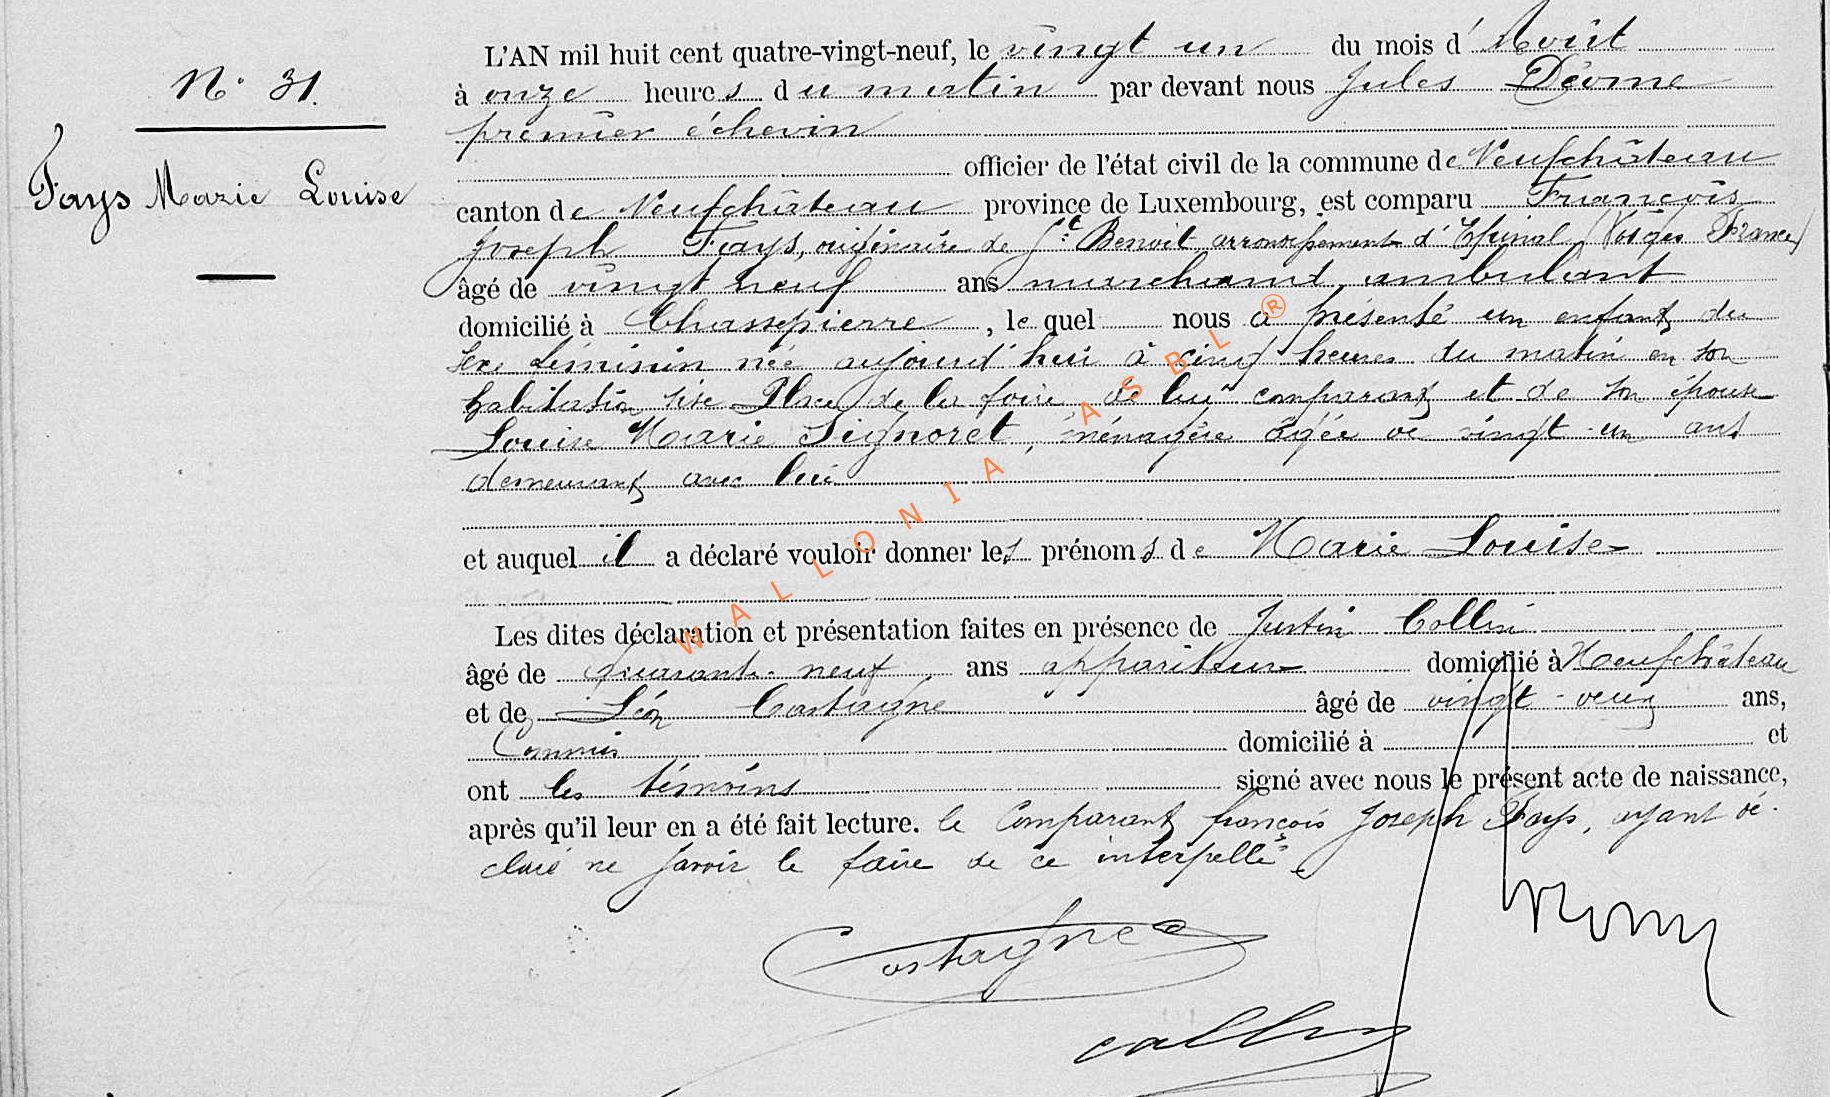 N° 31.
Fays Marie Louise
L'AN mil huit cent quatre-vingt-neuf, le vingt un du mois d' Août
à onze heures du matin par devant nous Jules Déome
premier échevin
officier de l'état civil de la commune de Neufchâteau
canton de Neufchâteau province de Luxembourg, est comparu François
Joseph Fays, originaire de St Benoit arrondissement d'Epinal (Vosges France)
âgé de vingt neuf ans marchand ambulant
domicilié à Chassepierre, lequel nous a présenté un enfant du
sexe féminin née aujourd'hui à cinq heures du matin en son
habitation sise Place de la foire, de lui comparant et de son épouse
Louise Marie Signoret, ménagère âgée de vingt-un ans
demeurant avec lui
et auquel il a déclaré vouloir donner les prénoms de Marie Louise
Les dites déclaration et présentation faites en présence de Justin Collin
âgé de quarante-neuf ans appariteur domicilié à Neufchâteau
et de Léon Castagne âgé de vingt-deux ans,
Commis domicilié à et
ont les témoins signé avec nous le présent acte de naissance,
après qu'il leur en a été fait lecture. le Comparant françois Joseph Fays, ayant dé-
claré ne savoir le faire de ce interpellé
Castagne
Collin
WALLONIA ASBL ®